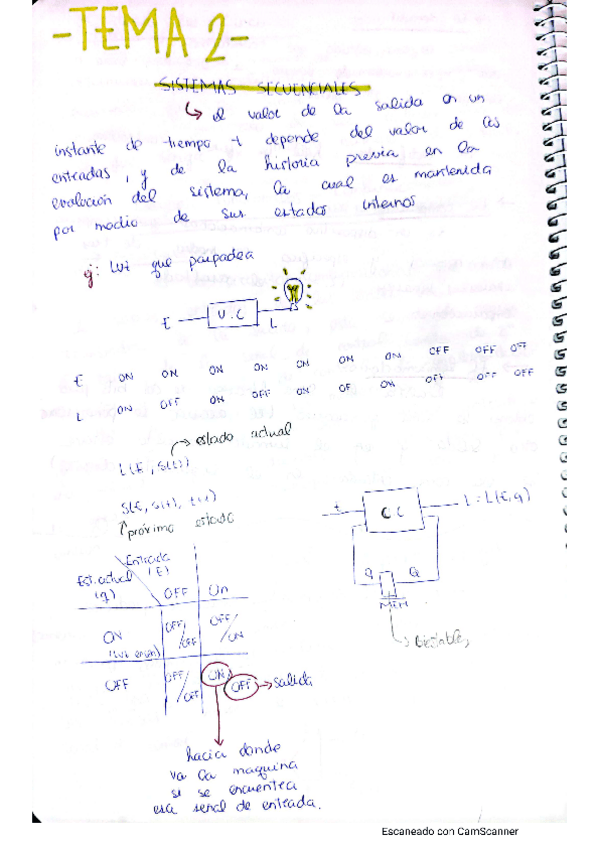 -TEMA 2-
SISTEMAS SECUENCIALES
↳ el valor de la salida en un
instante de tiempo t depende del valor de las
entradas, y de la historia previa en la
evolución del sistema, la cual es mantenida
por medio de sus estados internos
ej: Luz que parpadea
E U.C L
E ON ON ON ON ON ON ON OFF OFF OFF
L ON OFF ON OFF ON OF ON OFF OFF OFF
→ estado actual
L(E, S(t))
S(E, S(t), L(t))
próximo estado
E C.C L = L(E,q)
q Q
MEM
Biestables
Entrada
(E)
Est. actual
(q)
OFF On
ON
OFF/OFF OFF/ON
OFF OFF/OFF ON/OFF → salida
hacia donde
va la maquina
si se encuentra
esa señal de entrada.
Escaneado con CamScanner